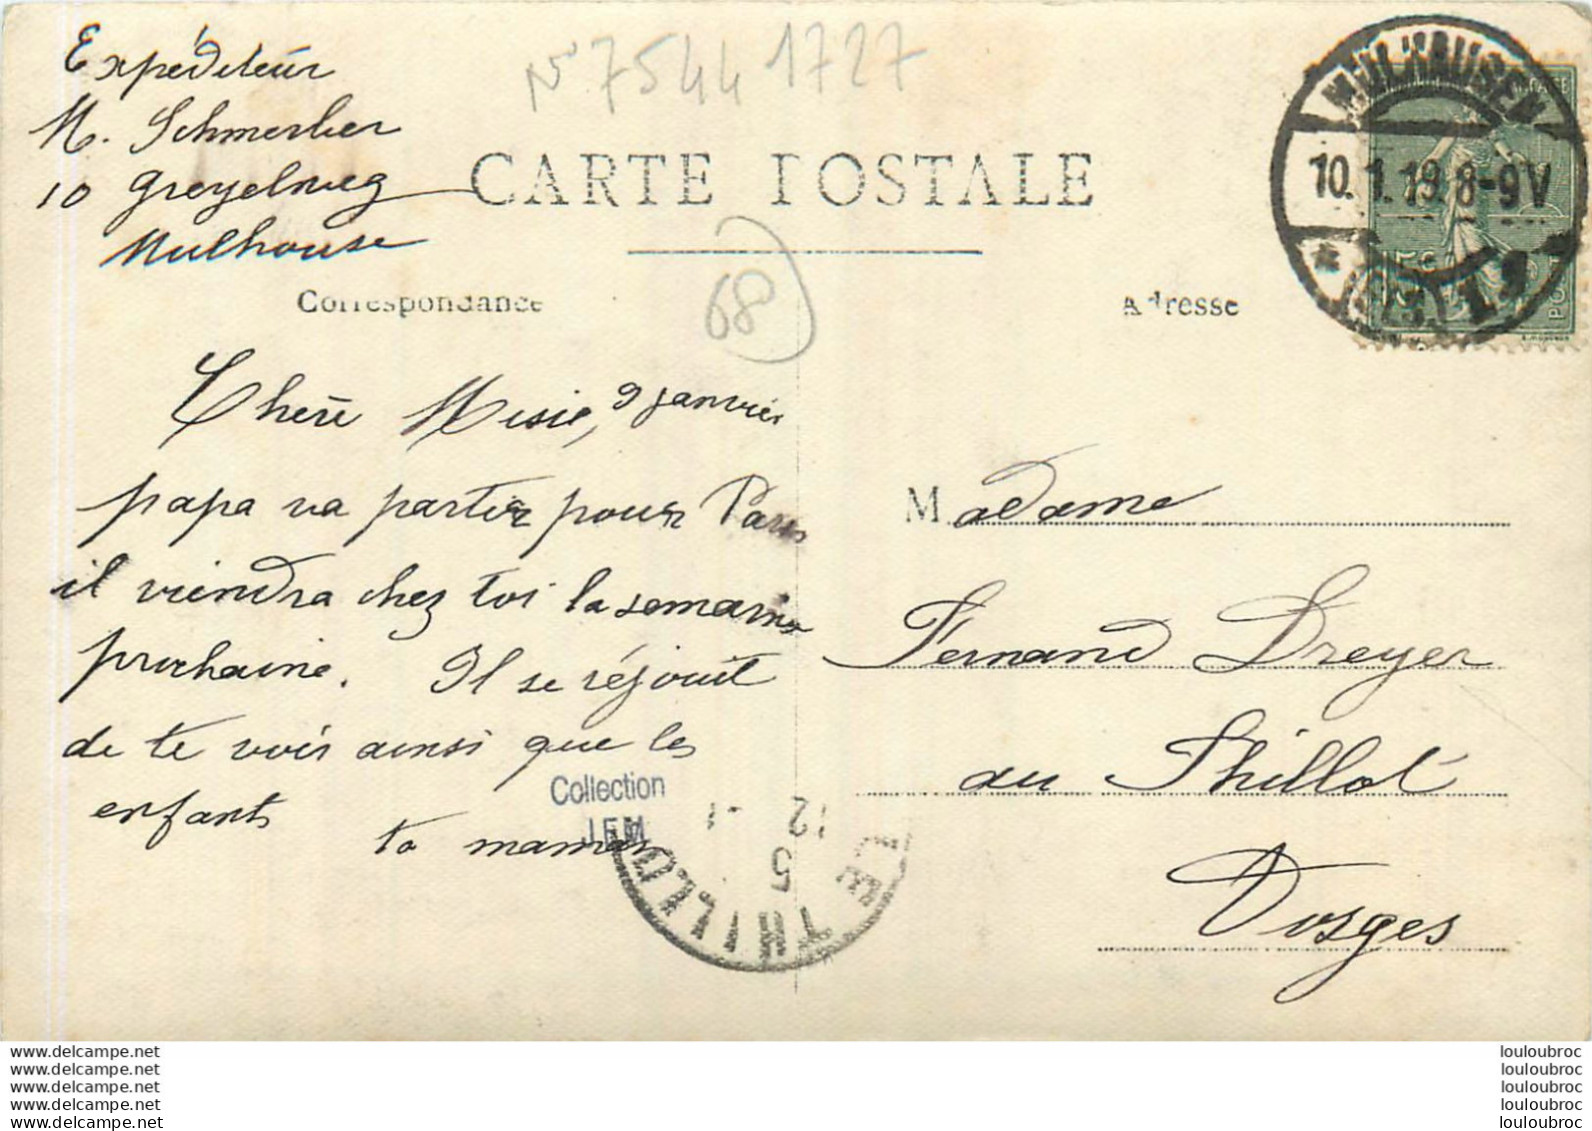 Expéditeur
M. Schmerber
10 Greyelweg
Mulhouse
N° 7544 1727
CARTE POSTALE
68
Correspondance
Adresse
MÜLHAUSEN
10.1.19.8-9V
(Els.) 1 s
15c
POSTES
Chère Misie, 9 janvier
papa va partir pour Paris
il viendra chez toi la semaine
prochaine. Il se réjouit
de te voir ainsi que les
enfants
ta maman
Collection
JEM
LE THILLOT
5
12 -1
Madame
Fernand Dreyer
au Thillot
Vosges
www.delcampe.net
www.delcampe.net
www.delcampe.net
www.delcampe.net
www.delcampe.net
louloubroc
louloubroc
louloubroc
louloubroc
louloubroc